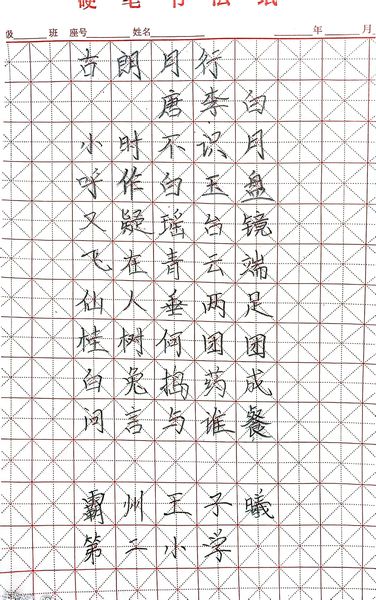 硬笔书法纸
级 班 座号 姓名 年 月
古朗月行
唐李白
小时不识月
呼作白玉盘
又疑瑶台镜
飞在青云端
仙人垂两足
桂树何团团
白兔捣药成
问言与谁餐
霸州王子曦
第二小学